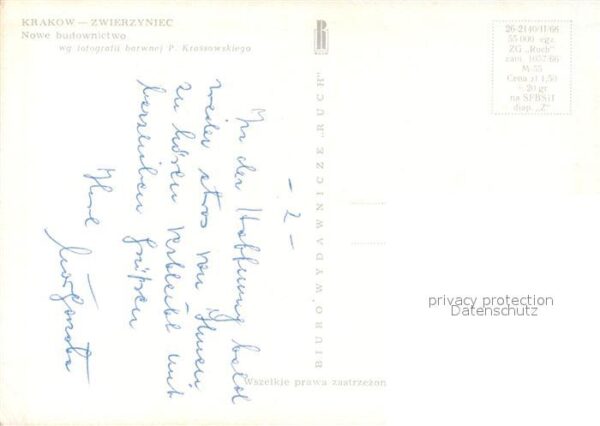 KRAKOW — ZWIERZYNIEC
Nowe budownictwo
wg fotografii barwnej P. Krassowskiego
R
26-2140/II/66
55 000 egz.
ZG „Ruch"
zam. 1057/66
M-55
Cena zł 1,50
+ 20 gr
na SFBSiI
diap. „Z"
- 2 -
In der Hoffnung bald
wieder etwas von Ihnen
zu hören verbleibt mit
herzlichen Grüßen
Ihre
Małgorzata
BIURO WYDAWNICZE „RUCH"
privacy protection
Datenschutz
Wszelkie prawa zastrzeżon